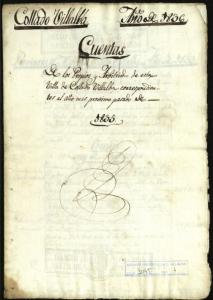 Collado Villalba Año de 1836
Cuentas
De los Propios y Arbitrios de esta
Villa de Collado Villalba correspondien
tes al año mil proximo pasado de
1835